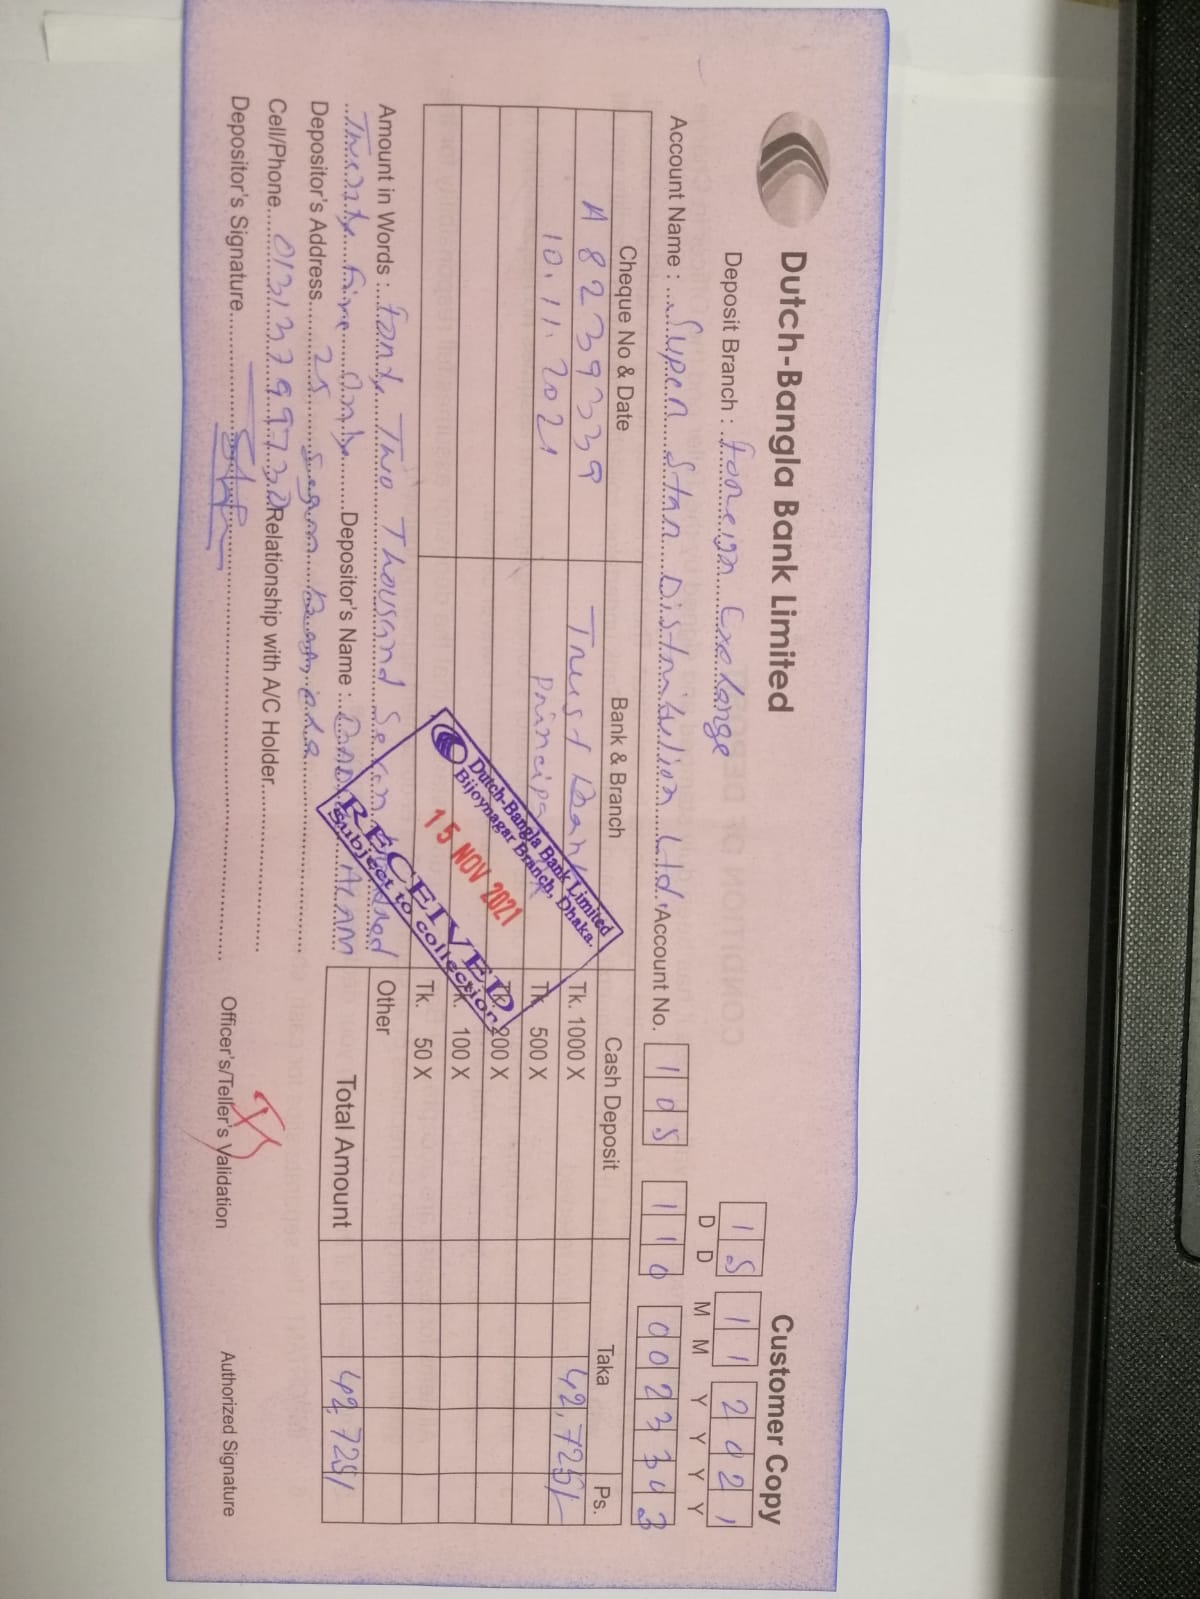 Dutch-Bangla Bank Limited
Customer Copy
Deposit Branch : Foreign Exchange
15 11 2021
D D M M Y Y Y Y
Account Name : Super Star Distribution Ltd. Account No. 105 110 0023303
Cheque No & Date Bank & Branch Cash Deposit Taka Ps.
A 8239339 Trust Bank Tk. 1000 X 42,725/-
10.11.2021 Principal Tk. 500 X
Tk. 200 X
Tk. 100 X
Tk. 50 X
Other
Total Amount 42,725/
Dutch-Bangla Bank Limited
Bijoynagar Branch, Dhaka.
15 NOV 2021
RECEIVED
Subject to collection
Amount in Words : Forty Two Thousand Seven Hundred
Twenty Five Only Depositor's Name : Alam
Depositor's Address 25 Segun
Cell/Phone Relationship with A/C Holder
Depositor's Signature
Officer's/Teller's Validation
Authorized Signature